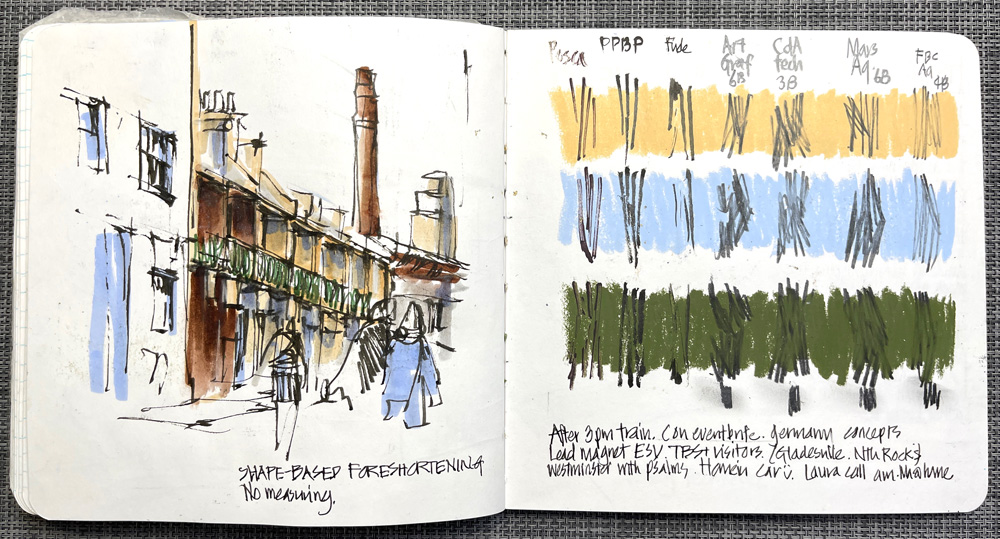 SHAPE-BASED FORESHORTENING
No measuring.
Posca PPBP Fude Art Graf 6B CdA Tech 3B Mars Aq 6B FBC Aq 4B
After 3pm train. Con eventbrite. Germany concepts
Lead magnet ESV. TBSt visitors. Gladesville. Nth Rocks
Westminster with psalms. Home in car. Laura call am.